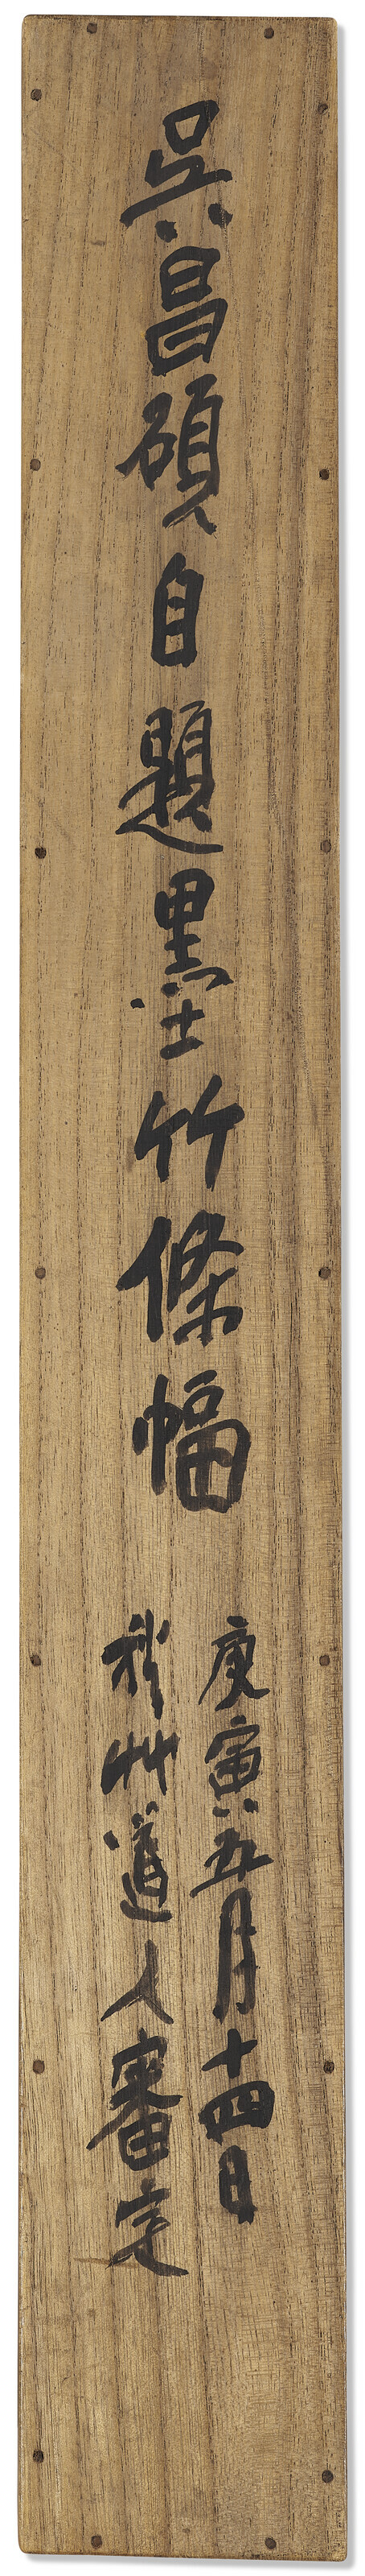 吳昌碩自題墨竹條幅
庚寅五月十四日
秋艸道人審定